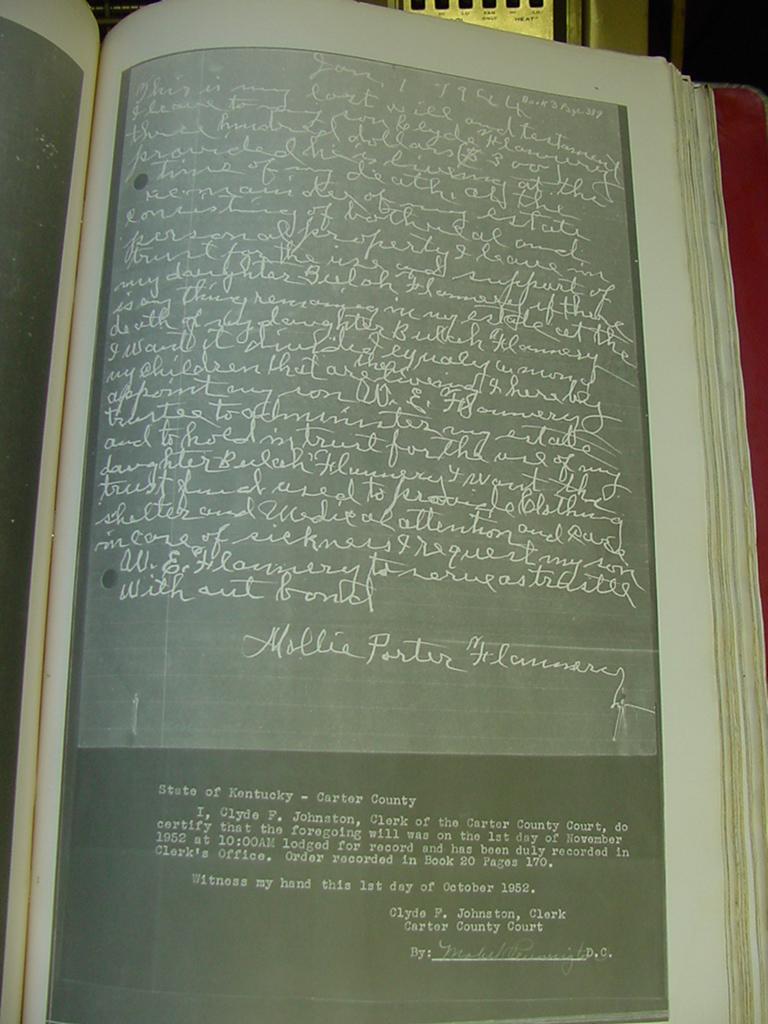 Jan 1 1944
Book 3 Page 389
This is my last will and testament
I leave to my son Clyde Flannery
three hundred dollars ($300)
provided he is living at the
time of my death all the
remainder of my estate
consisting of both real and
personal property I leave in
trust for the use and support of
my daughter Bulah Flannery if there
is any thing remaining in my estate at the
death of my daughter Bulah Flannery
I want it equaly among
my children that are living I hereby
appoint my son W. E. Flannery
trustee to administer my estate
and to hold in trust for the use of my
daughter Bulah Flannery I want this
trust fund used to provide Clothing
shelter and Medical attention and Care
in case of sickness I request my son
W. E. Flannery to serve as trustee
with out bond
Mollie Porter Flannery
State of Kentucky - Carter County
I, Clyde F. Johnston, Clerk of the Carter County Court, do
certify that the foregoing will was on the 1st day of November
1952 at 10:00AM lodged for record and has been duly recorded in
Clerk's Office. Order recorded in Book 20 Pages 170.
Witness my hand this 1st day of October 1952.
Clyde F. Johnston, Clerk
Carter County Court
By: D.C.
HEAT